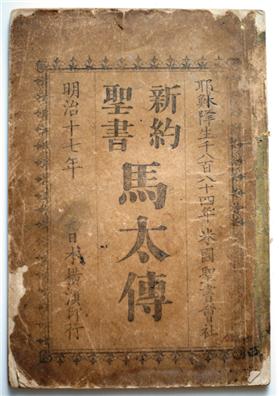 耶穌降生千八百八十四年 米國聖書會社
新約
聖書
馬太傳
明治十七年
日本橫濱印行